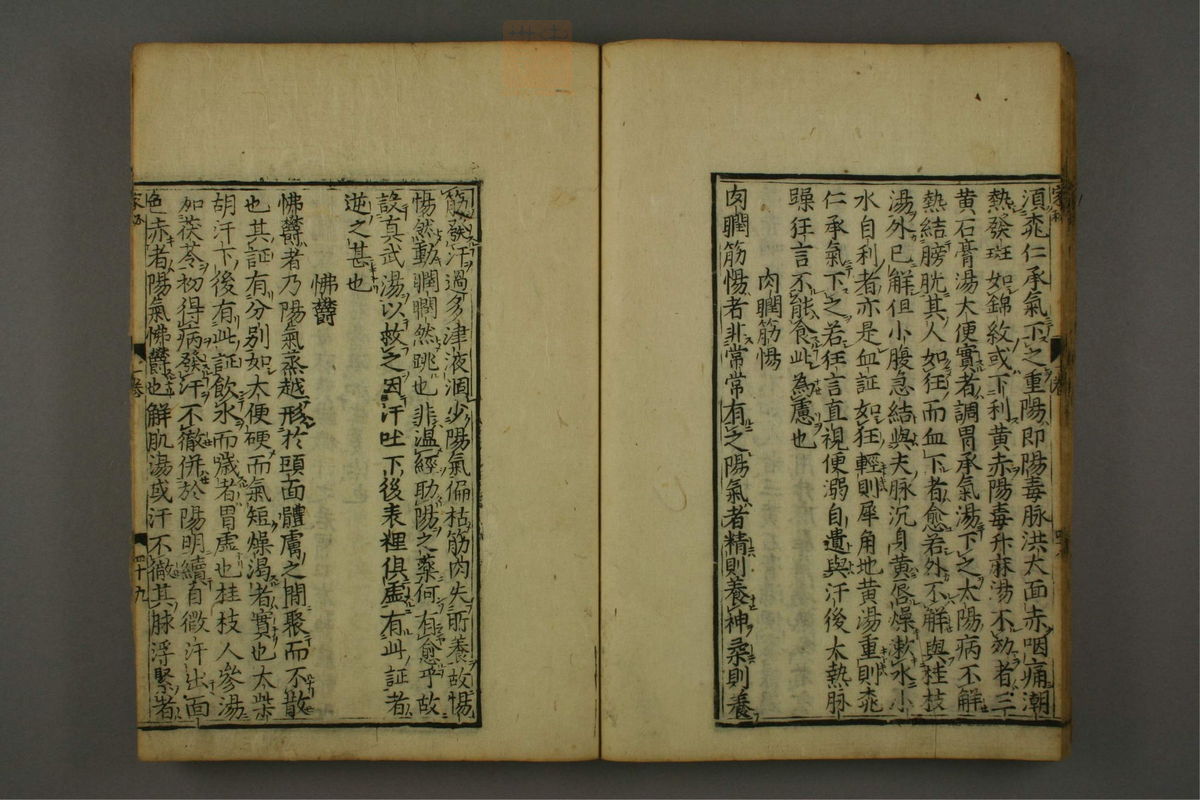 須桃仁承氣下之重陽即陽毒脉洪大面赤咽痛潮
熱發斑如錦紋或下利黄赤陽毒升麻湯不効者三
黄石膏湯大便實者調胃承氣湯下之太陽病不解
熱結膀胱其人如狂而血下者愈若外不解與桂枝
湯外已解但小腹急結與夫脉沉身黄唇燥漱水小
水自利者亦是血証如狂輕則犀角地黄湯重則桃
仁承氣下之若狂言直視便溺自遺與汗後大熱脉
躁狂言不能食此為慮也
肉瞤筋惕
肉瞤筋惕者非常常有之陽氣者精則養神柔則養
筋發汗過多津液涸少陽氣偏枯筋肉失所養故惕
惕然動瞤瞤然跳也非温經助陽之藥何有愈乎故
設真武湯以救之因汗吐下後表裡俱虚有此証者
逆之甚也
怫鬱
怫鬱者乃陽氣蒸越形於頭面體膚之間聚而不散
也其証有分别如大便硬而氣短燥渴者實也大柴
胡汗下後有此証飲水而噦者胃虚也桂枝人參湯
加茯苓初得病發汗不徹併於陽明續自微汗出面
色赤者陽氣怫鬱也解肌湯或汗不徹其脉浮緊者
卷
四十九